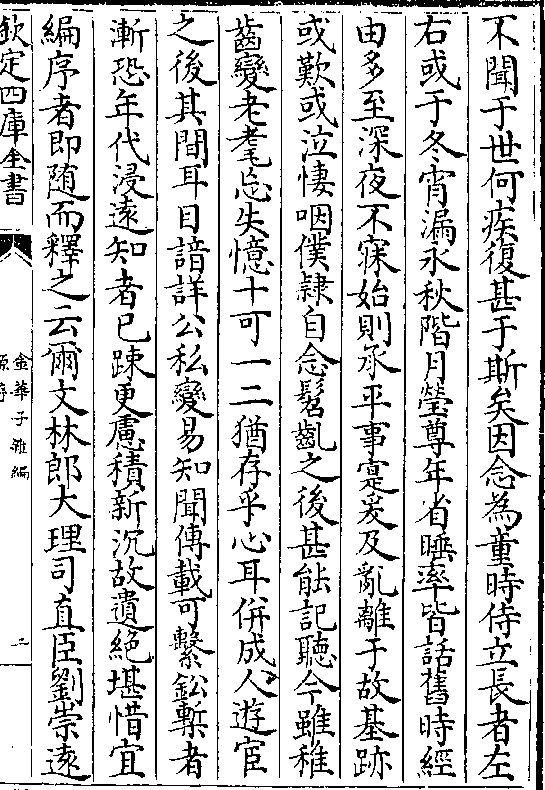 不聞于世何疾復甚于斯矣因念為童時侍立長者左
右或于冬宵漏永秋階月瑩尊年省睡率皆話舊時經
由多至深夜不寐始則承平事寔爰及亂離于故基跡
或歎或泣悽咽僕隷自念髫齓之後甚能記聽今雖稚
齒變老耄忘失憶十可一二猶存乎心耳併成人遊宦
之後其間耳目諳詳公私變易知聞傳載可繫鈆槧者
漸恐年代浸遠知者已踈更慮積新沉故遺絶堪惜宜
編序者即隨而釋之云爾文林郎大理司直臣劉崇遠
欽定四庫全書
金華子雜編
原序
二